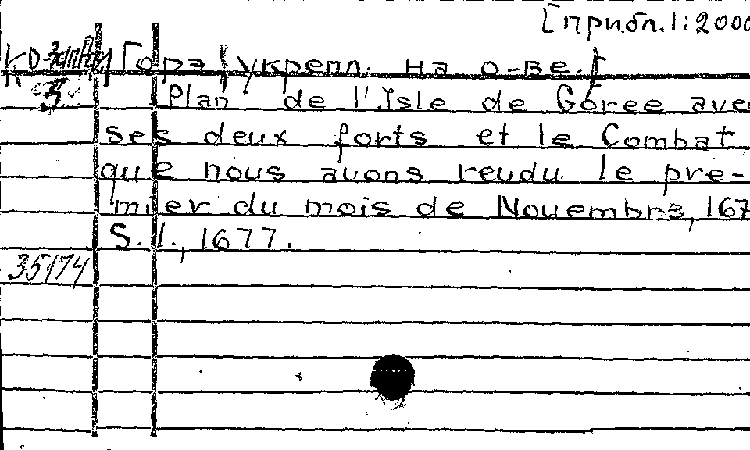 [прибл. 1:2000
КО Запад Гора (укрепл. на о-ве.)
5 Plan de l'Isle de Goree ave
ses deux forts et le Combat
que nous auons rendu le pre-
mier du mois de Nouembre, 167
S. l., 1677.
35174